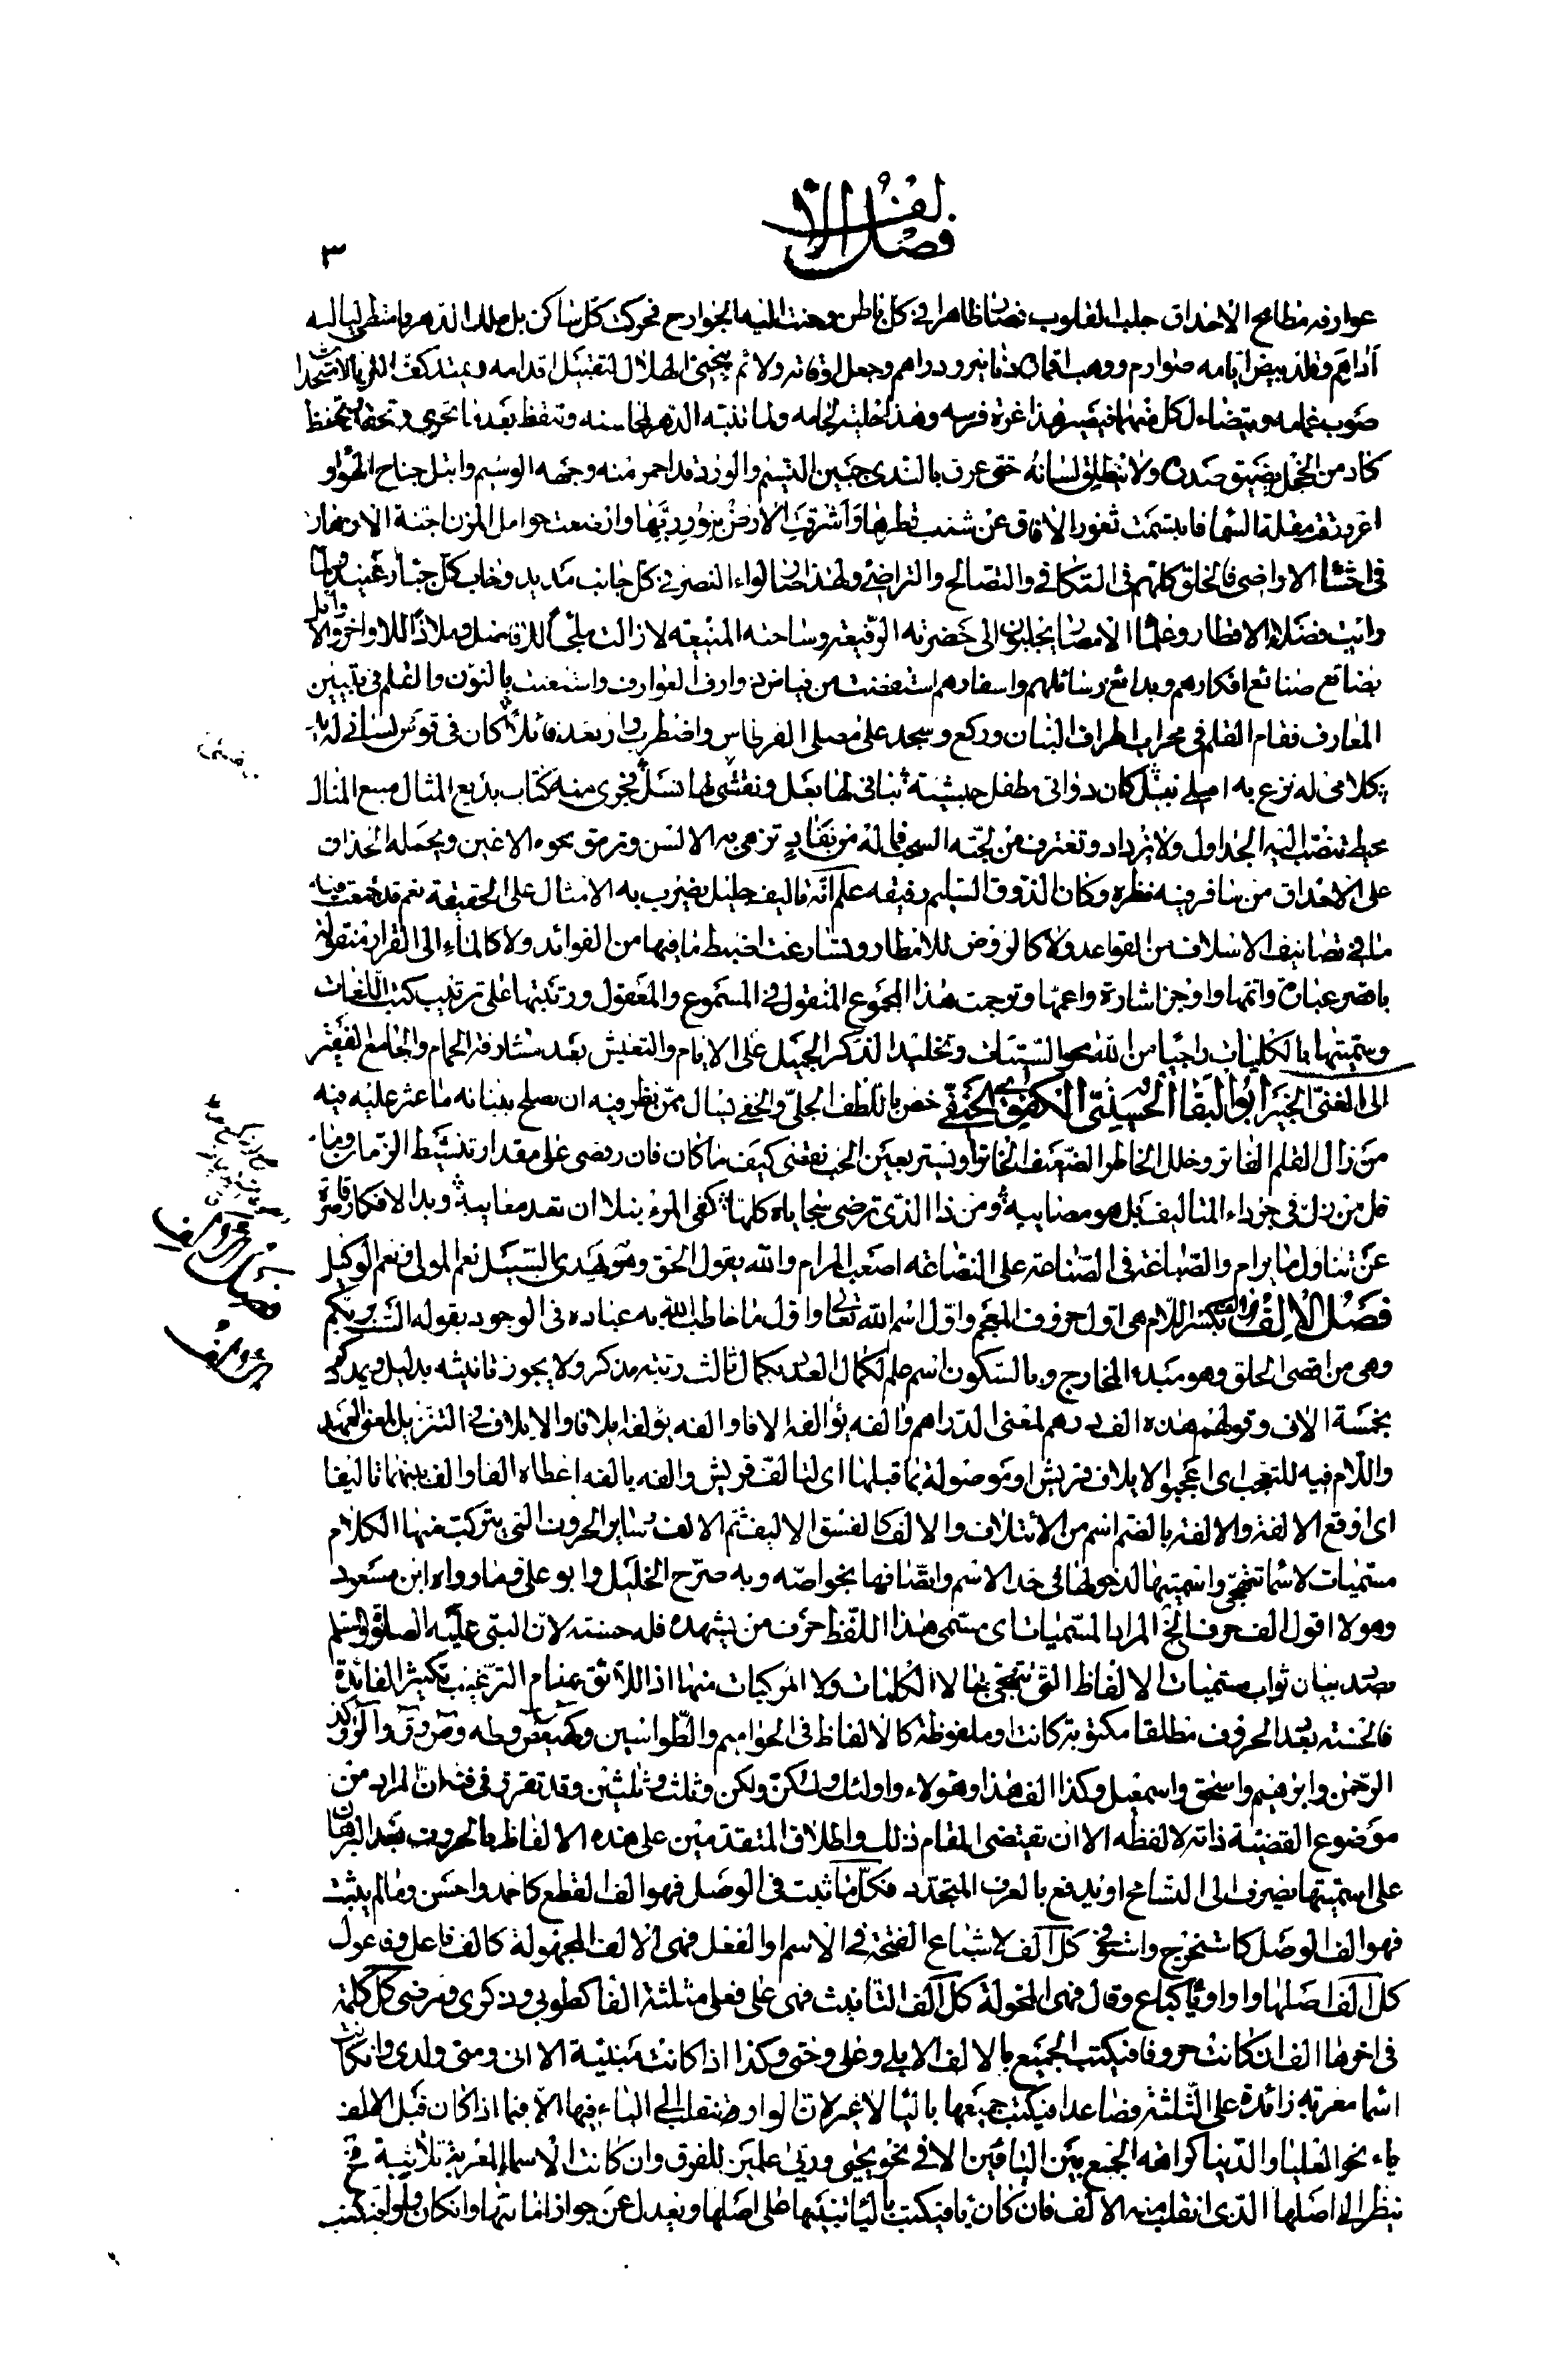 فصل الألف
٣
عوارفه مطامح الاحداق جلب القلوب فصار ظاهرا في كل باطن وحنت اليه الجوارح فحركت كل ساكن بل صلد الدهر فامتطى لياليه
اداهم وقلد بيض ايامه صوارم ووهب اقماره دنانير ودراهم وجعل اوقاته ولائم ينحني الهلال لتقبيل اقدامه ويمتد كف الثريا لاستجداء
صوب غمامه
كاد من الخجل يضيق صدره ولا ينطلق لسانه حتى عرق بالندى جبين النسيم والورد قد احمر منه وجهه الوسيم وابتل جناح الهواء و
اغرورقت مقلة السما فابتسمت ثغور الافاق عن شنب قطرها واشرقت الارض بنور ربها وارضعت حوامل المزن اجنة الازهار
في احشاء الاراضي فالخلق كلهم في التكافي والتصالح والتراضي ولهذا صار لواء النصر في كل جانب مديد وخاب كل جبار عنيد ولما
رايت فضلاء الاقطار وعلماء الامصار يجلبون الى حضرته الرفيعة وساحته المنيعة لا زالت ملجأ للافاضل وملاذا للاواخر والاوائل
بضائع صنائع افكارهم وبدائع رسائلهم واسفارهم استفضت من فياض ذوارف العوارف واستعنت بالنون والقلم في تبيين
المعارف فقام القلم في محراب اطراف البنان وركع وسجد على مصلى القرطاس واضطرب وارتعد قائلا كان في قوس لساني له
كلامي له نزع به املي نبل كان دواتي مطفل حبشية بناني لها بعل ونقشي لها نسل فجرى منه كتاب بديع المثال منيع المنال
محيط تنصب اليه الجداول ولا يزداد وتغترف من لجته السحب فما له من نفاد تزهى به الالسن وترمق نحوه الاعين ويحمله الحذاق
على الاحداق من سافر فيه نظره وكان الذوق السليم رفيقه علم انه تاليف جليل يضرب به الامثال على الحقيقة نعم قد جمعت فيه
ما في تصانيف الاسلاف من القواعد ولا كالروض للامطار وتسارعت لضبط ما فيها من الفوائد ولا كالماء الى القرار منقولة
باقصر عبارة واتمها واوجز اشارة واعمها وترجمت هذا المجموع المنقول في المسموع والمعقول ورتبتها على ترتيب كتب اللغات
وسميتها بالكليات راجيا من الله محو السيئات وتخليد الذكر الجميل على الايام والتعيش بعد مشارفة الحمام والجامع الفقير
الى الغني الخبير ابو البقاء الحسيني الكفوي الحنفي خص باللطف الجلي والخفي يسال ممن نظر فيه ان يصلح ببنانه ما عثر عليه فيه
من زال القلم الفاتر وخلل الخاطر الضعيف الخاثر ويستر بعين الحب نقصي كيف ما كان فان رضي على مقدار تنشيط الزمان وما
قل من زل في جزداء التاليف بل هو مصايبه ومن ذا الذي ترضى سجاياه كلها كفى المرء نبلا ان تعد معايبه ويد الافكار قاصرة
عن تناول ما يرام والصياغة في الصناعة على البضاعة اصعب المرام والله يقول الحق وهو يهدي السبيل نعم المولى ونعم الوكيل
فصل الالف بكسر اللام هي اول حروف المعجم واول اسم الله تعالى واول ما خاطب الله به عباده في الوجود بقوله الست بربكم
وهي من اقصى الحلق وهو مبدء المخارج وبالسكون اسم علم لكمال العدد بكمال ثالث رتبته مذكر ولا يجوز تانيثه بدليل يمددكم
بخمسة الاف وقولهم هذه الف درهم لمعنى الدراهم والفه يؤالفه الافا والفه يؤلفه ايلافا والايلاف في التنزيل لمعنى العهد
واللام فيه للتعجب اى اعجبوا لايلاف قريش او موصولة بما قبلها اى لتالف قريش والفه يالفه اعطاه الفا والف بينهما تاليفا
اى اوقع الالفة والالفة بالضم اسم من الائتلاف والالف كالفسق الاليف ثم الالف وسائر الحروف التي يتركب منها الكلام
مسميات لاسما تتهجى واسميتها لدخولها في حد الاسم واتصافها بخواصه وبه صرح الخليل وابو علي وما رواه ابن مسعود
وهو لا اقول الف حرف الخ المراد المسميات اى مسمى هذا اللفظ حرف من يشهده فله حسنة لان النبي عليه الصلوة والسلم
بصدد بيان ثواب مسميات الالفاظ التي نتهجى بها لا الكلمات ولا المركبات منها اذ اللائق بمقام الترغيب تكثير الفائدة
فالحسنة بعد الحروف مطلقا مكتوبة كانت او ملفوظة كالالفاظ في الحواميم والطواسين وكهيعص وطه وص وق والر وكذ
الرحمن وابرهيم واسحق واسمعيل وكذا الف هذا وهؤلاء واولئك ولكن ولكن وثلث وثلثين وقد تقرر في فنه ان المراد من
موضوع القضية ذاته لا لفظه الا ان تقتضى المقام ذلك واطلاق المتقدمين على هذه الالفاظ بالحروف بعد البرهان
على اسميتها يصرف الى التسامح او يدفع بالعرف المتجدد فكل ما ثبت في الوصل فهو الف القطع كاحمد واحسن وما لم يثبت
فهو الف الوصل كاستخرج واستوفى كل الف لاشباع الفتحة في الاسم او الفعل فهي الالف المجهولة كالف فاعل وفاعول
كل الف اصلها واو او يا كباع وقال فهي المحولة كل الف التانيث فهي على فعلى مثلثة الفا كطوبى وذكرى ومرضى كل كلمة
في اخرها الف ان كانت حروفا فيكتب الجميع بالالف الا بلى وعلى وحتى وكذا اذا كانت مبنية الا انى ومتى ولدى وان كانت
اسما معربة زائدة على الثلثة فصاعدا فيكتب جميعها باليا لا غير لان الواو تنقلب الى الياء فيها الا فيما اذا كان قبل الالف
ياء نحو العليا والدنيا كراهة الجمع بين اليائين الا في نحو يحيى وربى علمين للفرق وان كانت الاسماء المعربة ثلاثية فح
ينظر الى اصلها الذي انقلب منه الالف فان كان يا فيكتب باليا تنبيها على اصلها ويعدل عن جواز امالتها وان كان واوا فيكتب